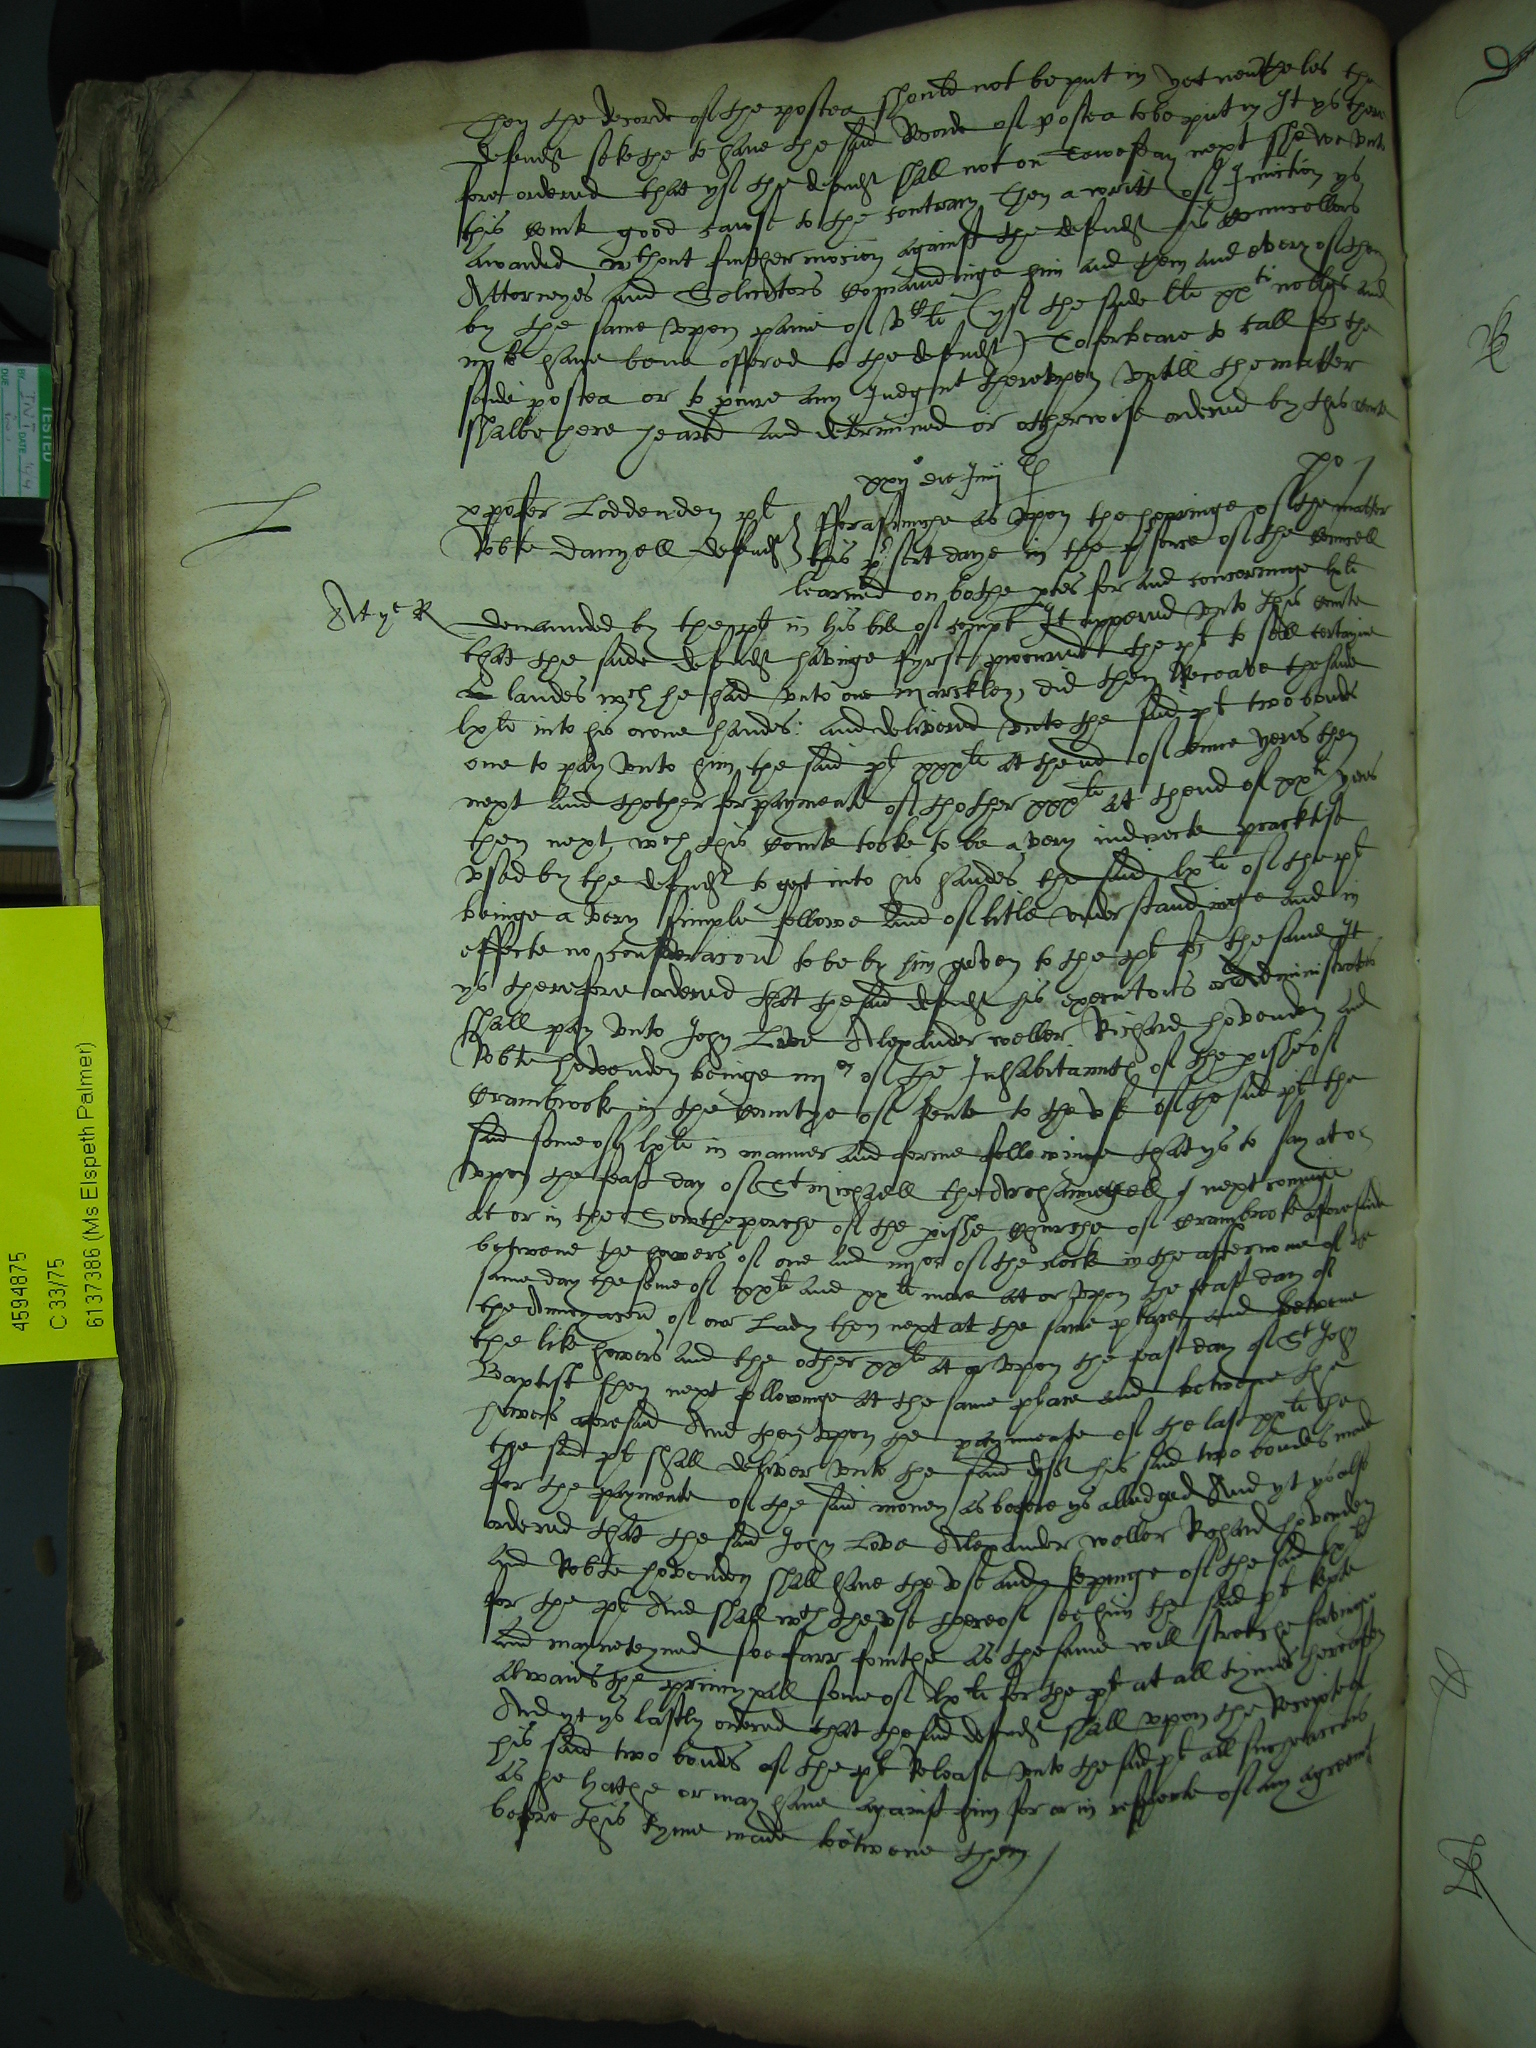 then the Recorde of the postea should not be put in yet nevertheles the
defendt seketh to have the said Recorde of postea to be put in It ys there
fore ordered that yf the defendt shall not on Tewesday next shewe unto
this courte good cawse to the contrary then a writt of Iniunction ys
awarded wthout further mocion against the defendt his councellors
Attorneyes and Solicitors comaundinge him and them and every of them
by the same upon paine of (yf the saide xxti nobles and
have bene offered to the defendt) To forbeare to call for the
saide postea or to pcure any Judgmt thereupon untill the matter
shalbe here heard and determined or otherwise ordered by this courte
xxij die Junij
xpofer Loddenden plt
Robte Danyell defendt
fforasmuche as upon the hearinge of the matter
this psent daye in the psence of the councell
learned on bothe ptes for and concerninge lxli
At ye R
demaunded by the plt in his bill of complt It appered unto this courte
that the saide defendt havinge fyrst procured the plt to sell certayne
landes wch he had unto one Marckley, did then Receave the said
lxli into his owne handes: and delivered unto the said plt two bondes
one to pay unto him the said plt xxxli at thend of tenne yeres then
next and thother for payment of thother xxxli at thend of xxti yeres
then next wch this courte tooke to be a very indirecte practise
used by the defendt to get into his handes the said lxli of the plt
beinge a very simple fellowe and of litle understandinge and in
effecte no consideracion to be by him geven to the plt for the same It
ys therefore ordered that the said defendt his executors or administrators
shall pay unto John Love Alexander Weller Richard Hovenden and
Robte Hovenden beinge iiijer of the Inhabitauntes of the pishe of
Cranbrooke in the countye of Kente to the use of the said plt the
said some of lxli in manner and forme followinge that ys to say at or
upon the feast day of St Michaell the Archaungell next cominge
at or in the Southe porche of the pishe churche of Cranbrooke aforesaid
betwene the howers of one and iijer of the clock in the afternoone of the
same day the some of xxli and xxli more at or upon the feast day of
the Annunciacion of our Lady then next at the same place and betwene
the like howers and the other xxli at or upon the feast day of St John
Baptist then next followinge at the same place and betwene the
howers aforesaid And then upon the paymente of the last xxli the
the said plt shall deliver unto the said deft his said two bondes made
for the paymente of the said money as before ys alledged And yt ys also
ordered that the said John Love Alexander Weller Richard Hovenden
and Robte Hovenden shall have the use and kepinge of the said lxli
for the plt And shall wth the use thereof see him the said plt kepte
and mayneteyned soe farr fourthe as the same will stretche savinge
alwaies the principall some of lxli for the plt at all tymes hereafter
And yt ys lastly ordered that the said defendt shall upon the Receipte of
his said two bondes of the plt Release unto the said plt all suche accions
as he hathe or may have against him for or in respecte of any agreemt
before this tyme made betwene them
TESTED
BY
DATE
DUE
4594875
C 33/75
6137386 (Ms Elspeth Palmer)